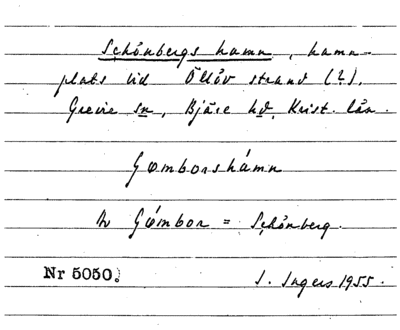 Schönbergs hamn, hamn-
plats vid Öllöv strand (?),
Grevie sn, Bjäre hd, Krist. län.
Gömborshámn
Gö́mbor = Schönberg.
Nr 5050.
I. Ingers 1955.